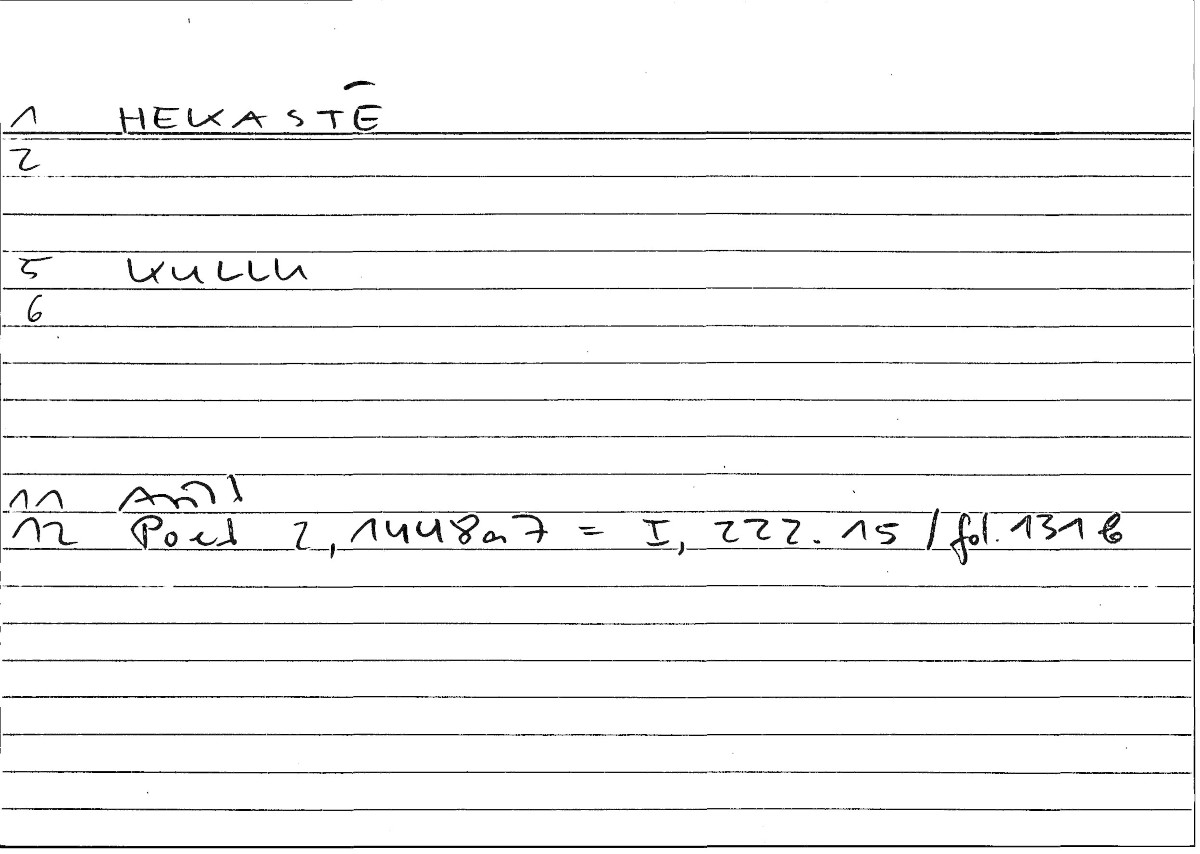 1 HEKASTĒ
2
5 KULLU
6
11 Arist
12 Poet 2, 1448a7 = I, 222.15 / fol. 131b